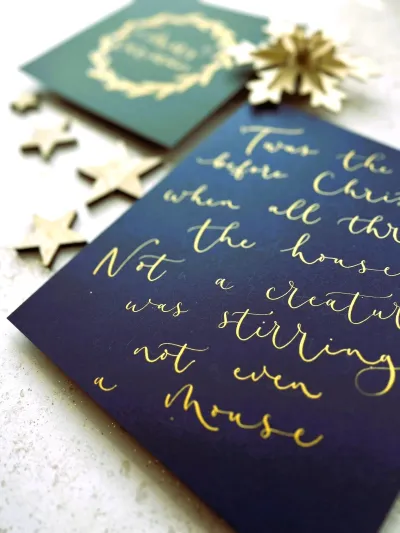 Twas the
before Chris
when all thr
the house
Not a creatur
was stirring
not even
a Mouse